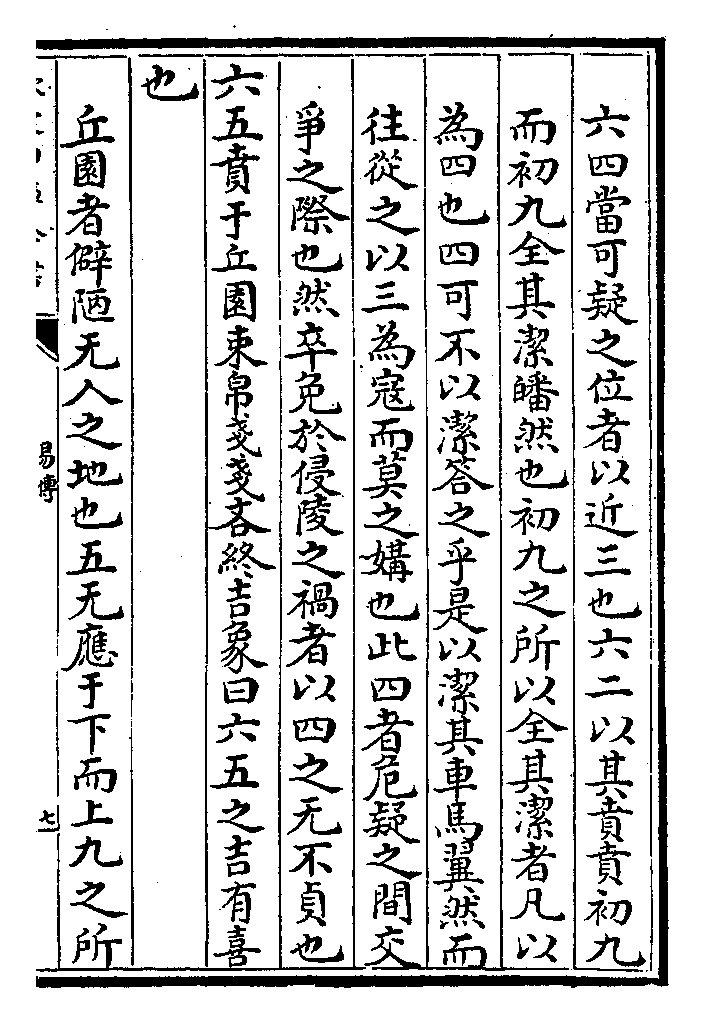 六四當可疑之位者以近三也六二以其賁賁初九
而初九全其潔皤然也初九之所以全其潔者凡以
為四也四可不以潔答之乎是以潔其車馬翼然而
往從之以三為寇而莫之媾也此四者危疑之間交
爭之際也然卒免於侵陵之禍者以四之无不貞也
六五賁于丘園束帛戔戔吝終吉象曰六五之吉有喜
也
丘園者僻陋无人之地也五无應于下而上九之所
易傳
七